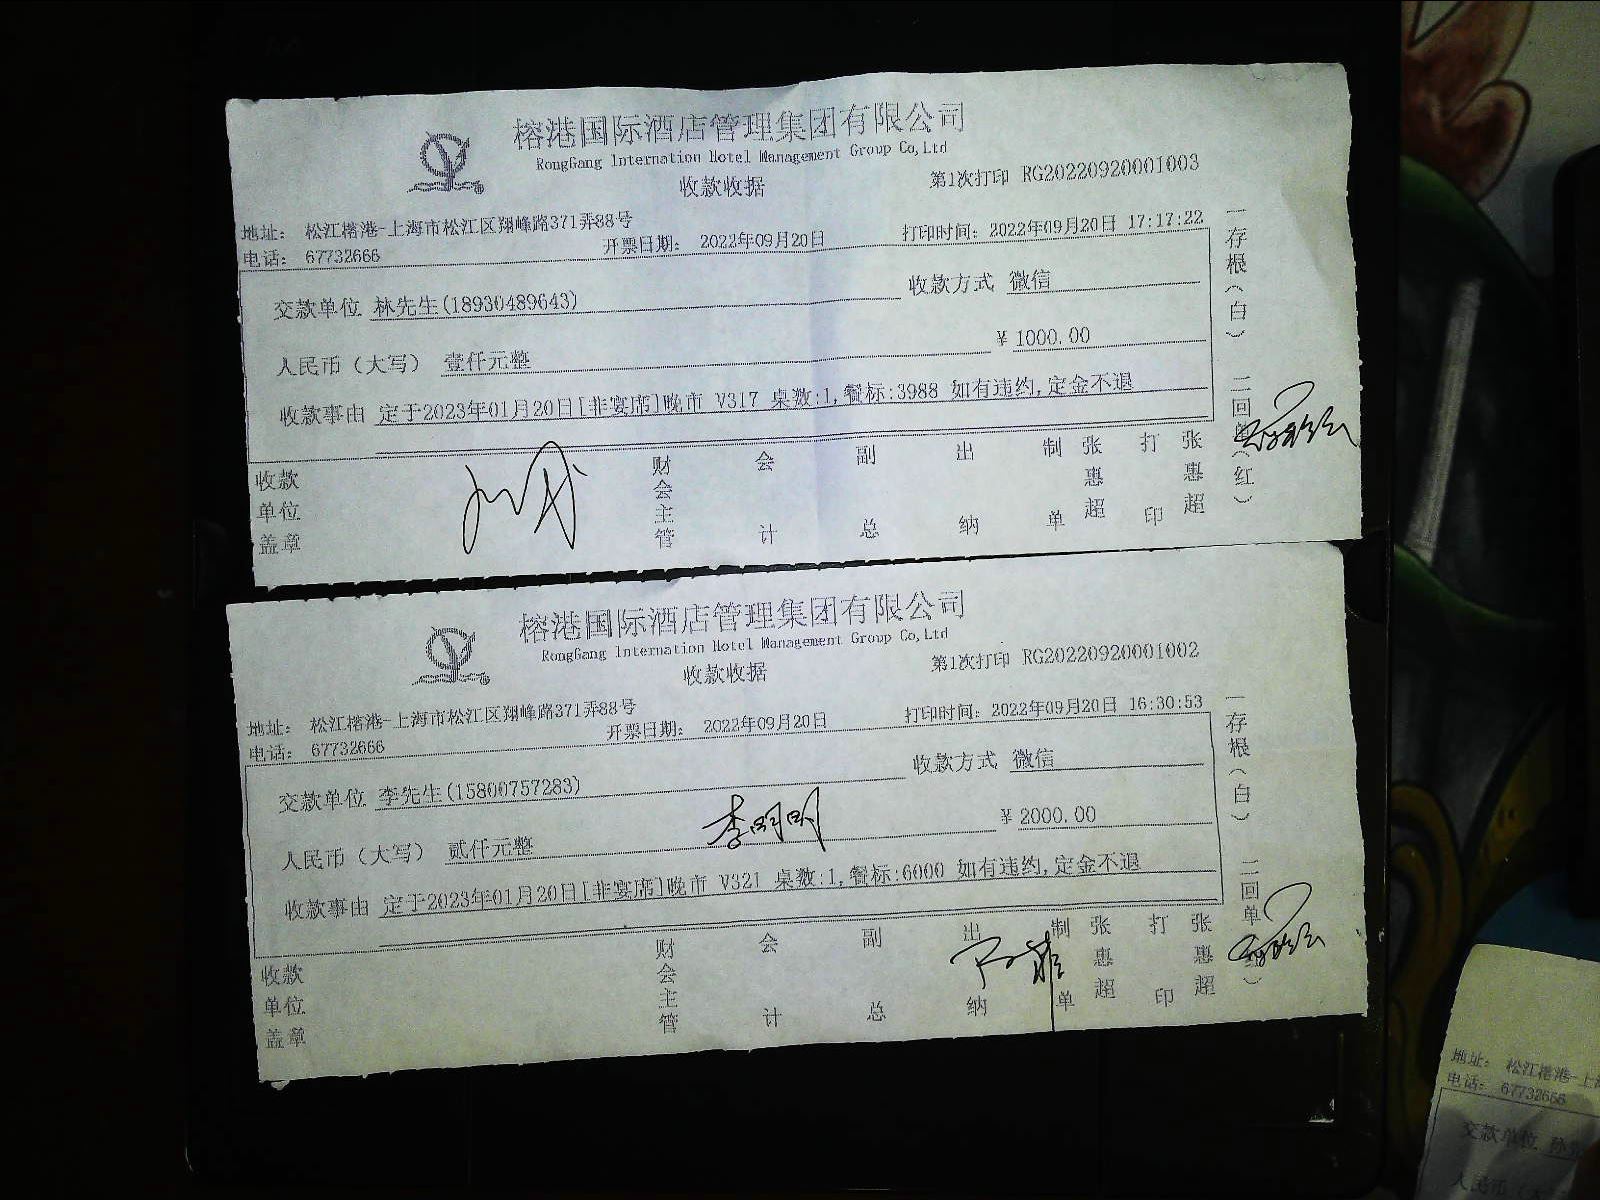 榕港国际酒店管理集团有限公司
RongGang Internation Hotel Management Group Co,Ltd
收款收据
第1次打印 RG20220920001003
地址： 松江榕港-上海市松江区翔峰路371弄88号
电话： 67732666
开票日期： 2022年09月20日
打印时间：2022年09月20日 17:17:22
交款单位 林先生(18930489643)
收款方式 微信
人民币（大写） 壹仟元整
¥ 1000.00
收款事由 定于2023年01月20日[非宴席]晚市 V317 桌数:1,餐标:3988 如有违约,定金不退
收款单位盖章
财会主管
会计
副总
出纳
制单 张惠超
打印 张惠超
一存根（白） 二回单（红）
榕港国际酒店管理集团有限公司
RongGang Internation Hotel Management Group Co,Ltd
收款收据
第1次打印 RG20220920001002
地址： 松江榕港-上海市松江区翔峰路371弄88号
电话： 67732666
开票日期： 2022年09月20日
打印时间：2022年09月20日 16:30:53
交款单位 李先生(15800757283)
收款方式 微信
李明明
人民币（大写） 贰仟元整
¥ 2000.00
收款事由 定于2023年01月20日[非宴席]晚市 V321 桌数:1,餐标:6000 如有违约,定金不退
收款单位盖章
财会主管
会计
副总
出纳
制单 张惠超
打印 张惠超
一存根（白） 二回单（红）
地址： 松江榕港-上
电话： 67732666
交款单位
人民币